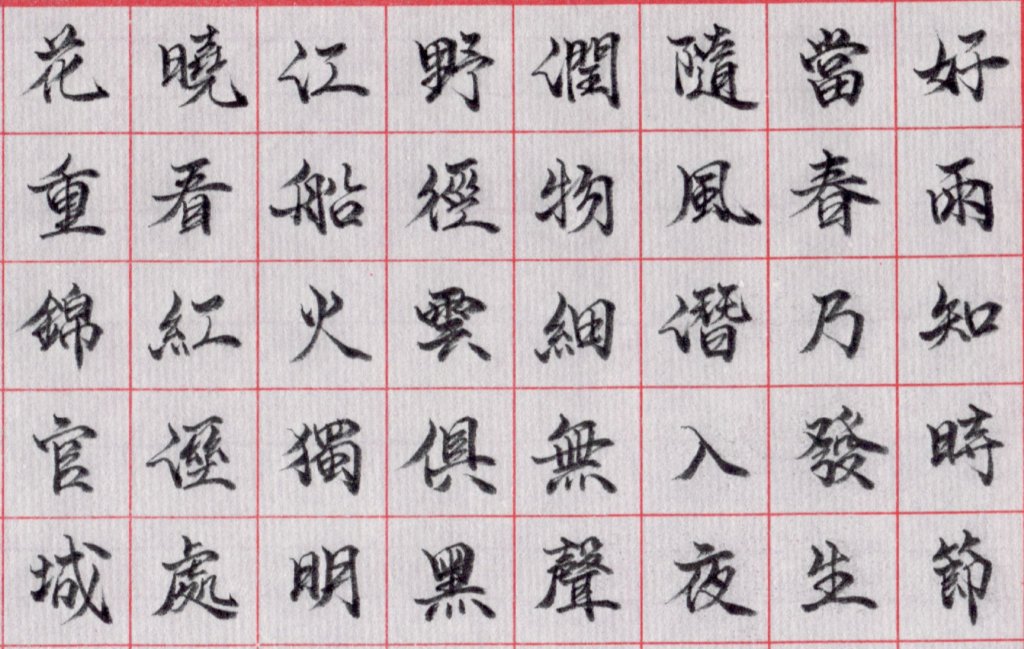 好雨知時節
當春乃發生
隨風潛入夜
潤物細無聲
野徑雲俱黑
江船火獨明
曉看紅溼處
花重錦官城